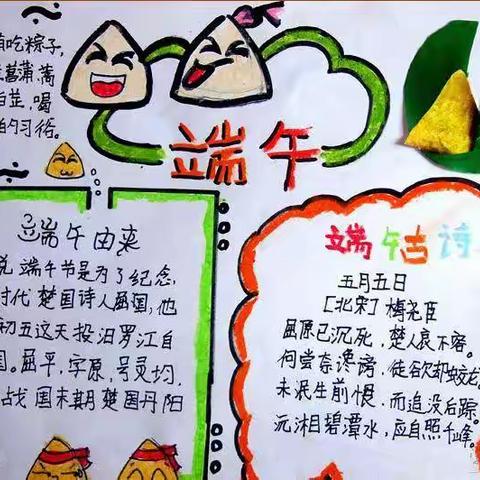 吃粽子,
菖蒲、蒿
白芷,喝
的习俗。
端午
端午由来
说端午节是为了纪念
时代楚国诗人屈原,他
初五这天投汨罗江自
屈平,字原,号灵均,
战国末期楚国丹阳
端午古诗
五月五日
[北宋]梅尧臣
屈原已沉死,楚人哀不容。
何尝奈谗谤,徒欲却蛟龙
未泯生前恨,而追没后踪。
沅湘碧潭水,应自照千峰。